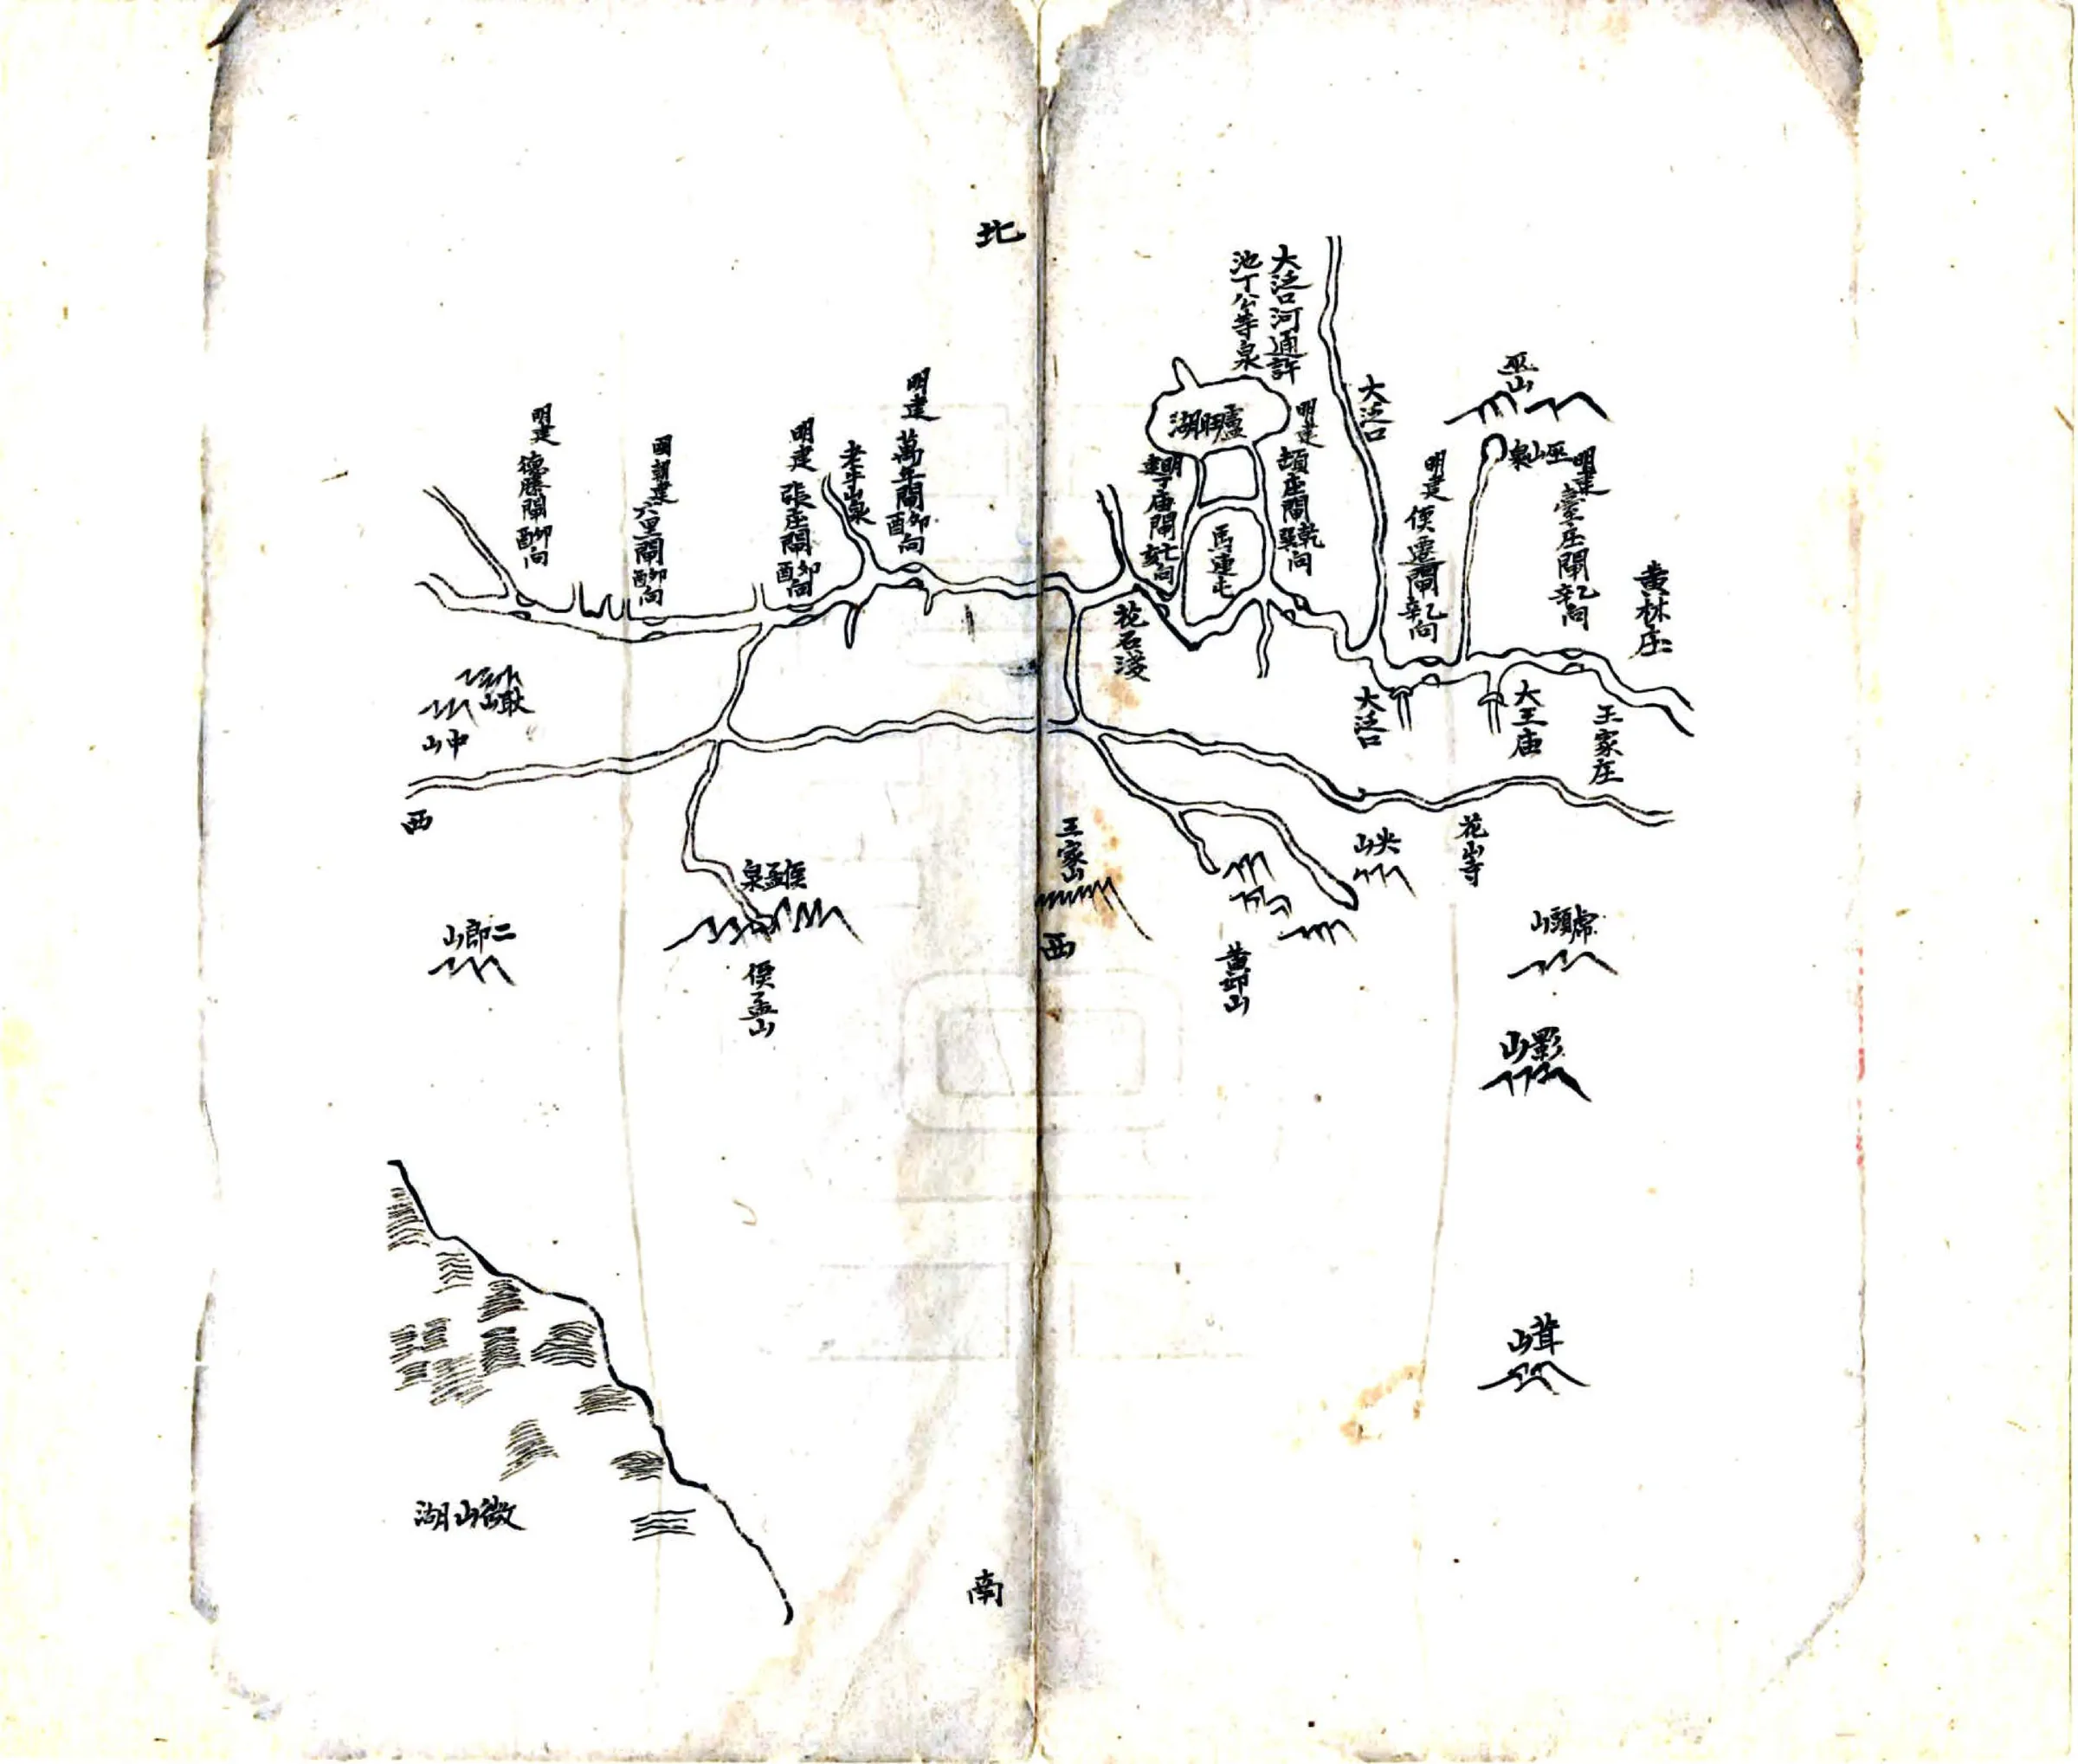 北
大泛口河通許
池丁公等泉
大泛口
巫山
巫山泉
明建
臺庄閘乙辛向
黄林庄
明建
侯遷閘乙辛向
明建
頓庄閘乾巽向
湖
明建
丁庙閘
馬連屯
花石淺
大泛口
大王庙
王家庄
明建
萬年閘卯酉向
明建
張庄閘卯酉向
國朝建
六里閘卯酉向
明建
德勝閘卯酉向
耿山
中山
西
侯孟泉
侯孟山
二郎山
王家山
西
黄卯山
尖山
花山寺
虎頭山
影山
茸山
微山湖
南